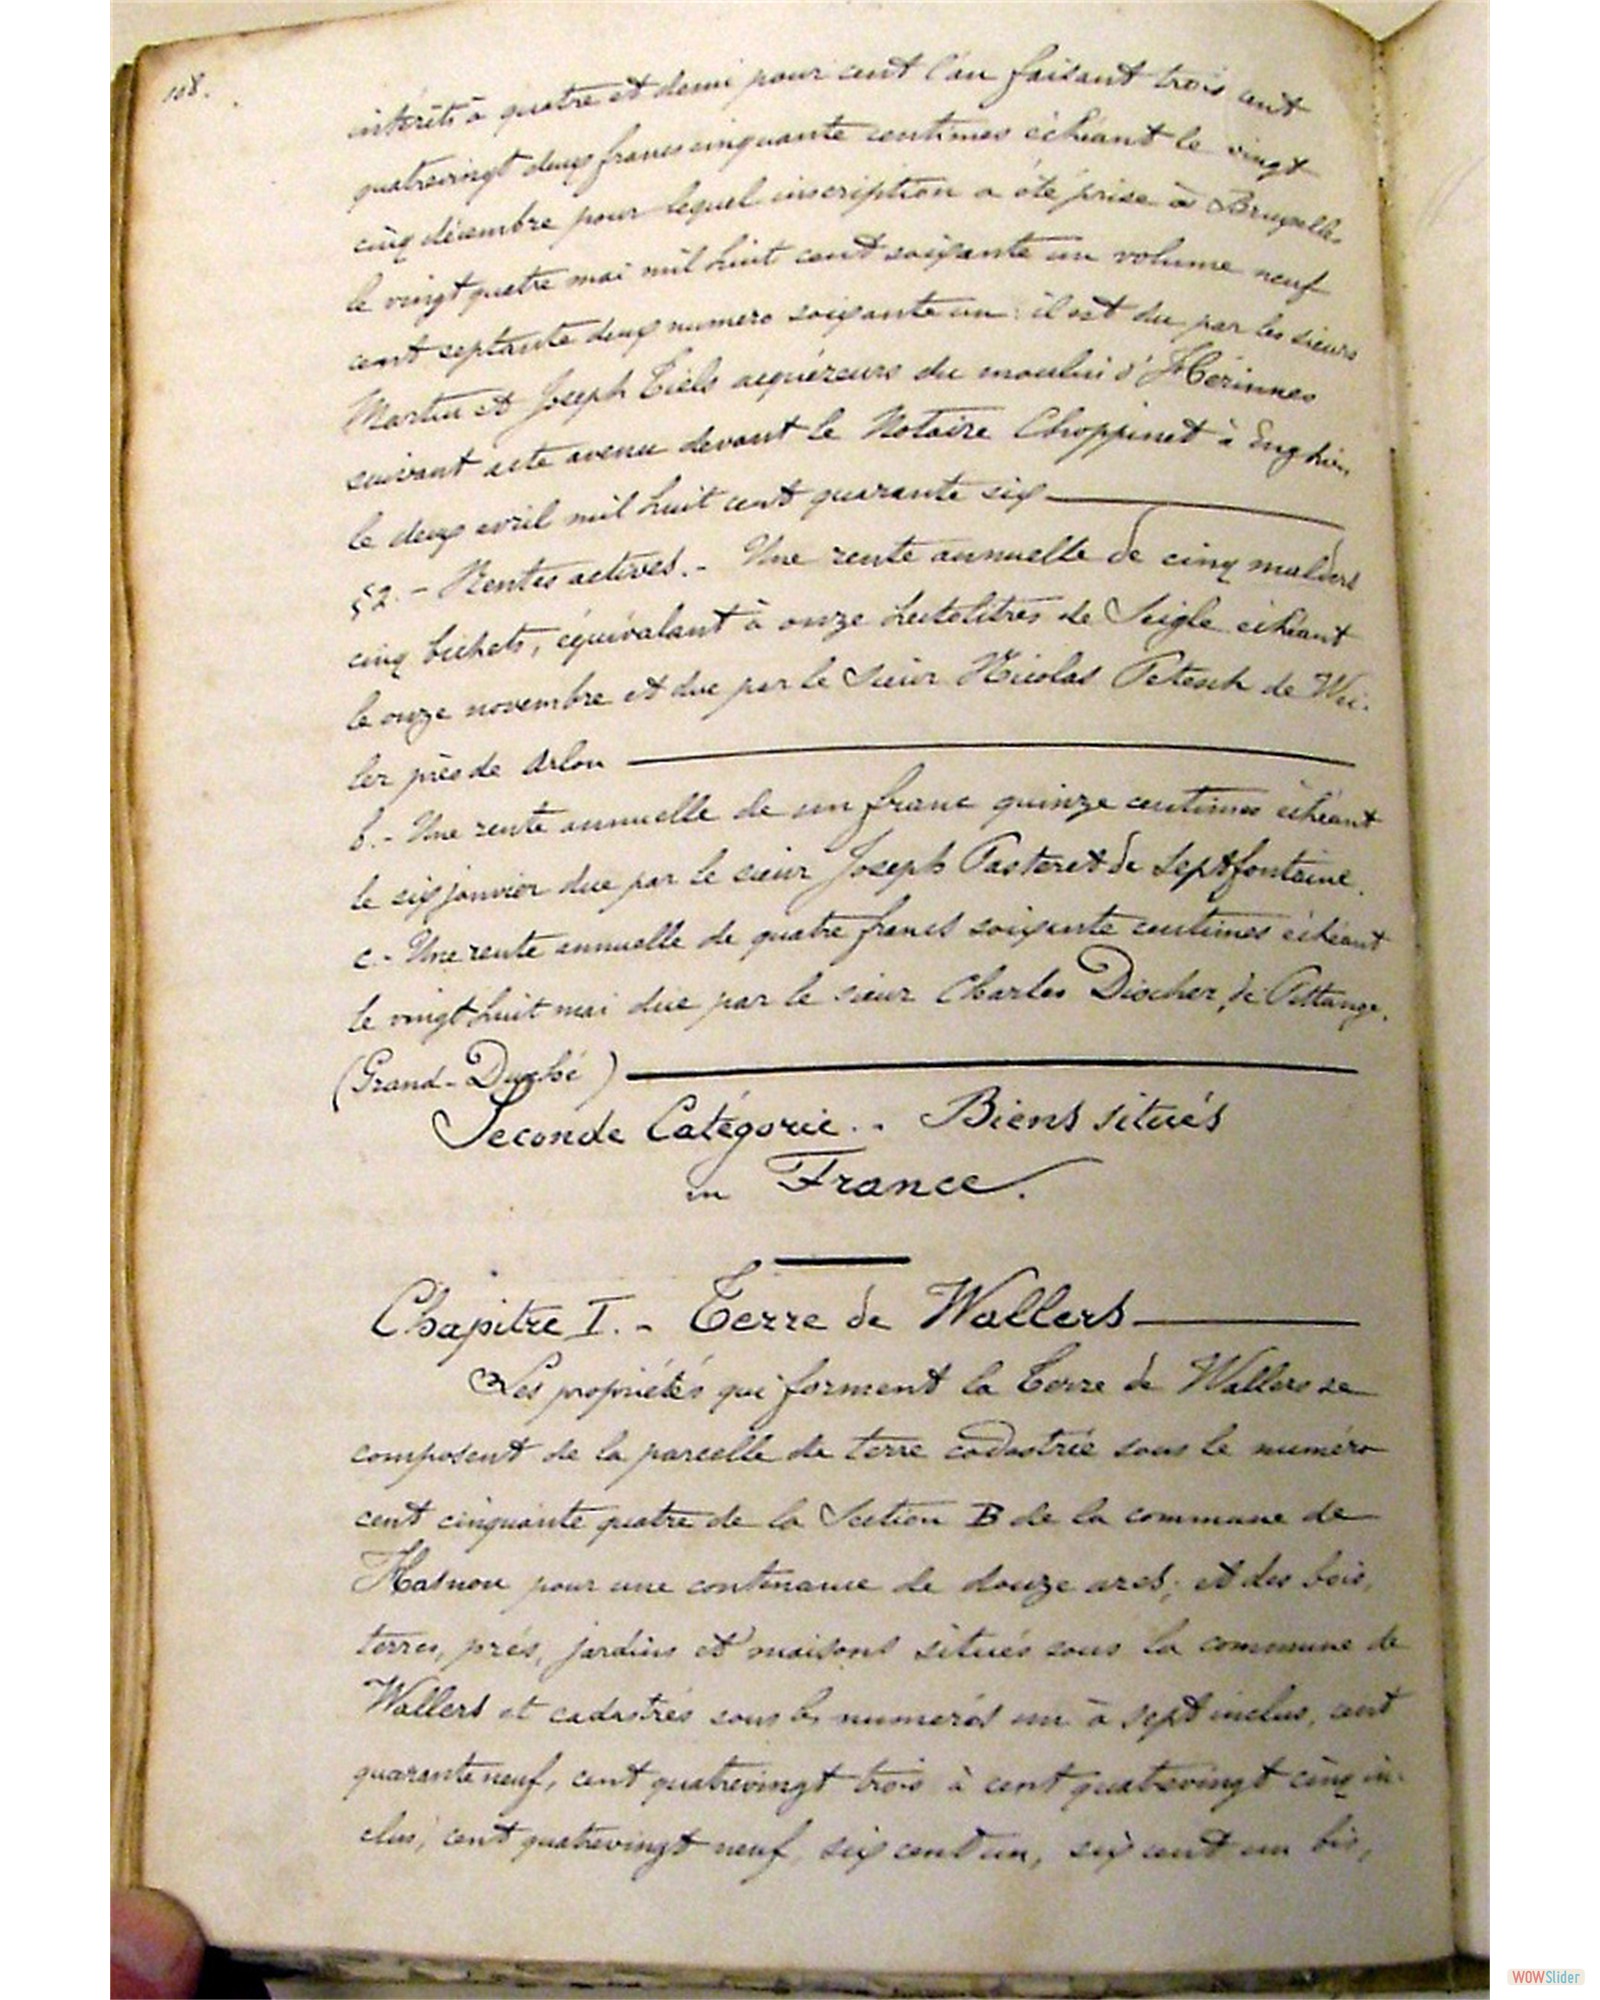 108.
intérêts à quatre et demi pour cent l'an faisant trois cent
quatrevingt deux francs cinquante centimes échéant le vingt
cinq décembre pour lequel inscription a été prise à Bruxelles
le vingt quatre mai mil huit cent soixante un volume neuf
cent septante deux numero soixante un : il est du par les sieurs
Martin et Joseph Tiels acquéreurs du moulin d'Hérinnes
suivant acte avenu devant le Notaire Choppinet à Enghien
le deux avril mil huit cent quarante six
§2. - Rentes actives. - Une rente annuelle de cinq malders
cinq bichets, équivalant à onze hectolitres de Seigle échéant
le onze novembre et due par le Sieur Nicolas Petesch de Wei-
ler près de Arlon
b. - Une rente annuelle de un franc quinze centimes échéant
le six janvier due par le sieur Joseph Pasteret de Septfontaine.
c. - Une rente annuelle de quatre francs soixante centimes échéant
le vingt huit mai due par le sieur Charles Discher, de Pettange,
(Grand-Duché)
Seconde Catégorie. - Biens situés
en France.
Chapitre I. - Terre de Wallers
Les propriétés qui forment la Terre de Wallers se
composent de la parcelle de terre cadastrée sous le numéro
cent cinquante quatre de la Section B de la commune de
Hasnon pour une contenance de douze ares; et des bois,
terres, prés, jardins et maisons situés sous la commune de
Wallers et cadastrés sous les numerós un à sept inclus, cent
quarante neuf, cent quatrevingt trois à cent quatrevingt cinq in-
clus, cent quatrevingt neuf, six cent un, six cent un bis,
WOWSlider